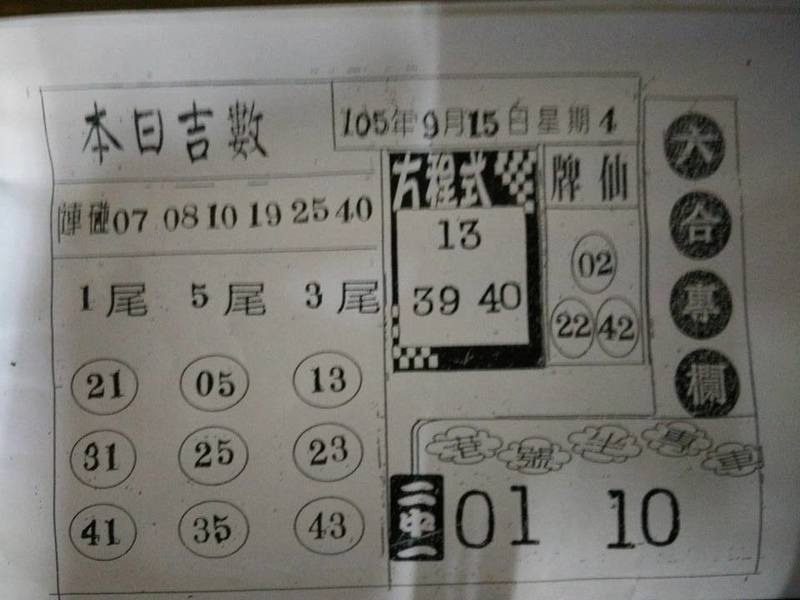 本日吉數
105年9月15日星期4
六合專欄
連碰07 08 10 19 25 40
方程式
13
39 40
牌仙
02
22 42
1尾 5尾 3尾
21 05 13
31 25 23
41 35 43
港號坐專車
二中一 01 10